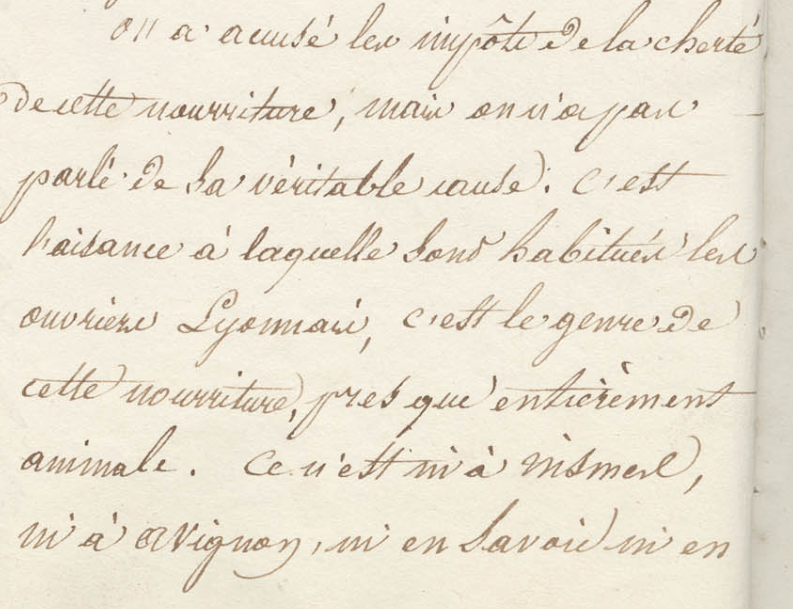 on a accusé les impôts de la cherté
de cette nourriture, mais on n'a pas
parlé de sa véritable cause. c'est
l'aisance à laquelle sont habitués les
ouvriers Lyonnais, c'est le genre de
cette nourriture, presque entièrement
animale. Ce n'est ni à nismes,
ni à avignon, ni en Savoie ni en